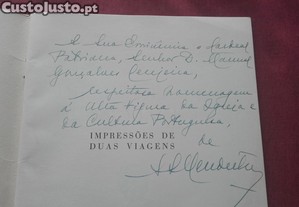 CustoJusto.pt
A Sua Eminência o Cardeal
Patriarca, Senhor D. Manuel
Gonçalves Cerejeira,
respeitosa homenagem
à Alta Figura da Igreja e
da Cultura Portuguesa,
IMPRESSÕES DE
DUAS VIAGENS
de